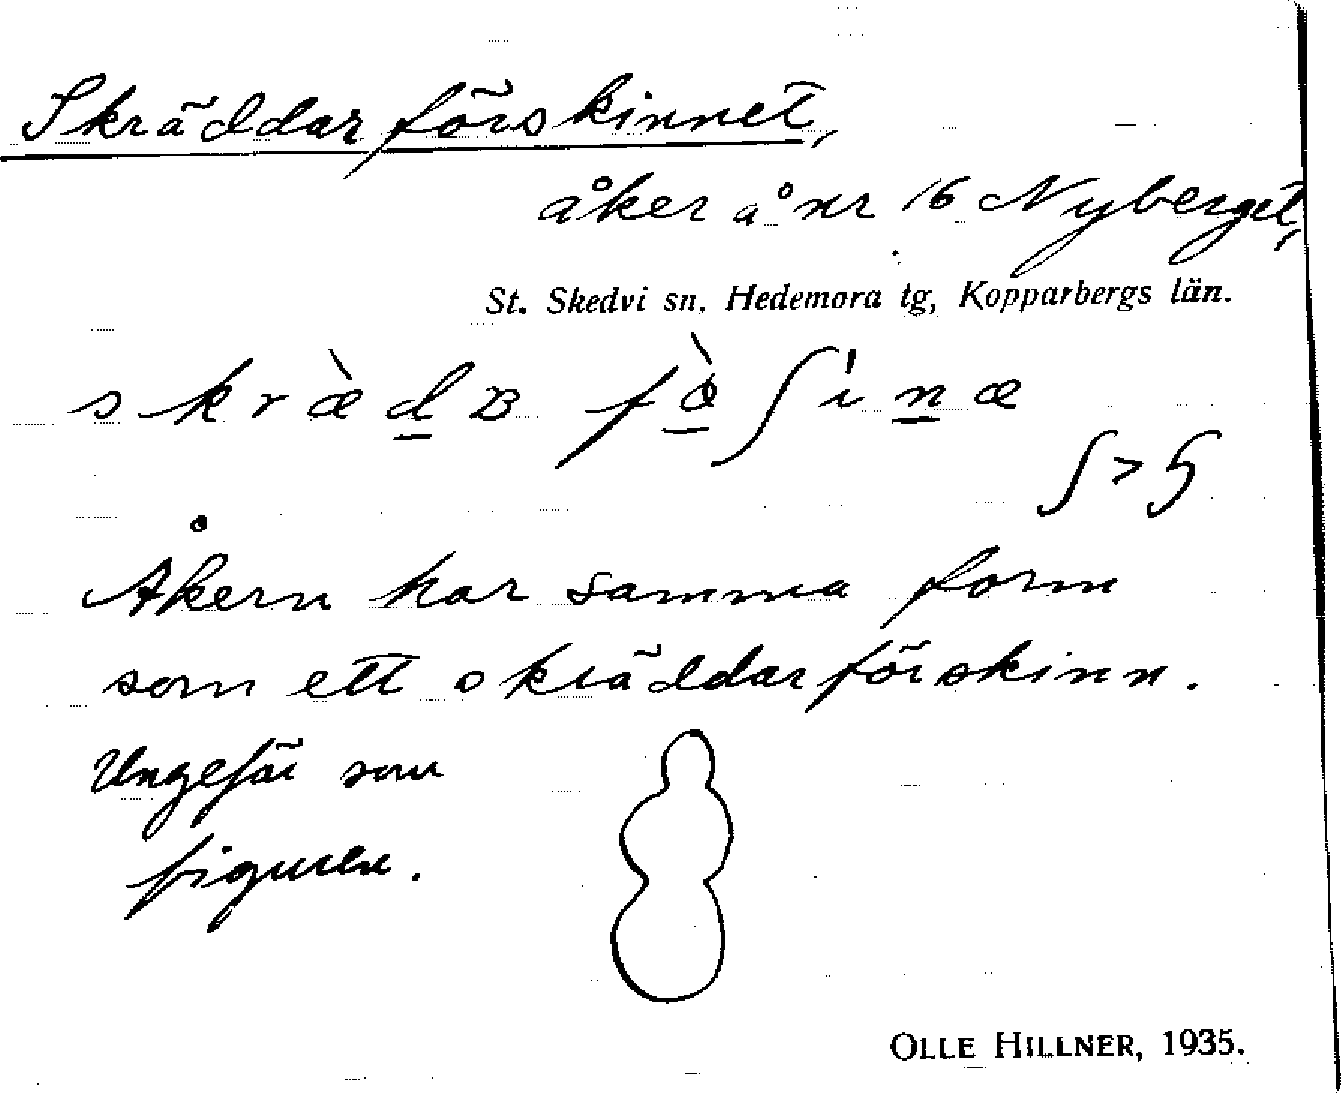 Skräddarförskinnet,
åker å nr 16 Nyberget,
St. Skedvi sn. Hedemora tg, Kopparbergs län.
skræ̀dʙ fœ̀ʃinæ
ʃ >
Åkern har samma form
som ett skräddarförskinn.
Ungefär som
figuren.
OLLE HILLNER, 1935.